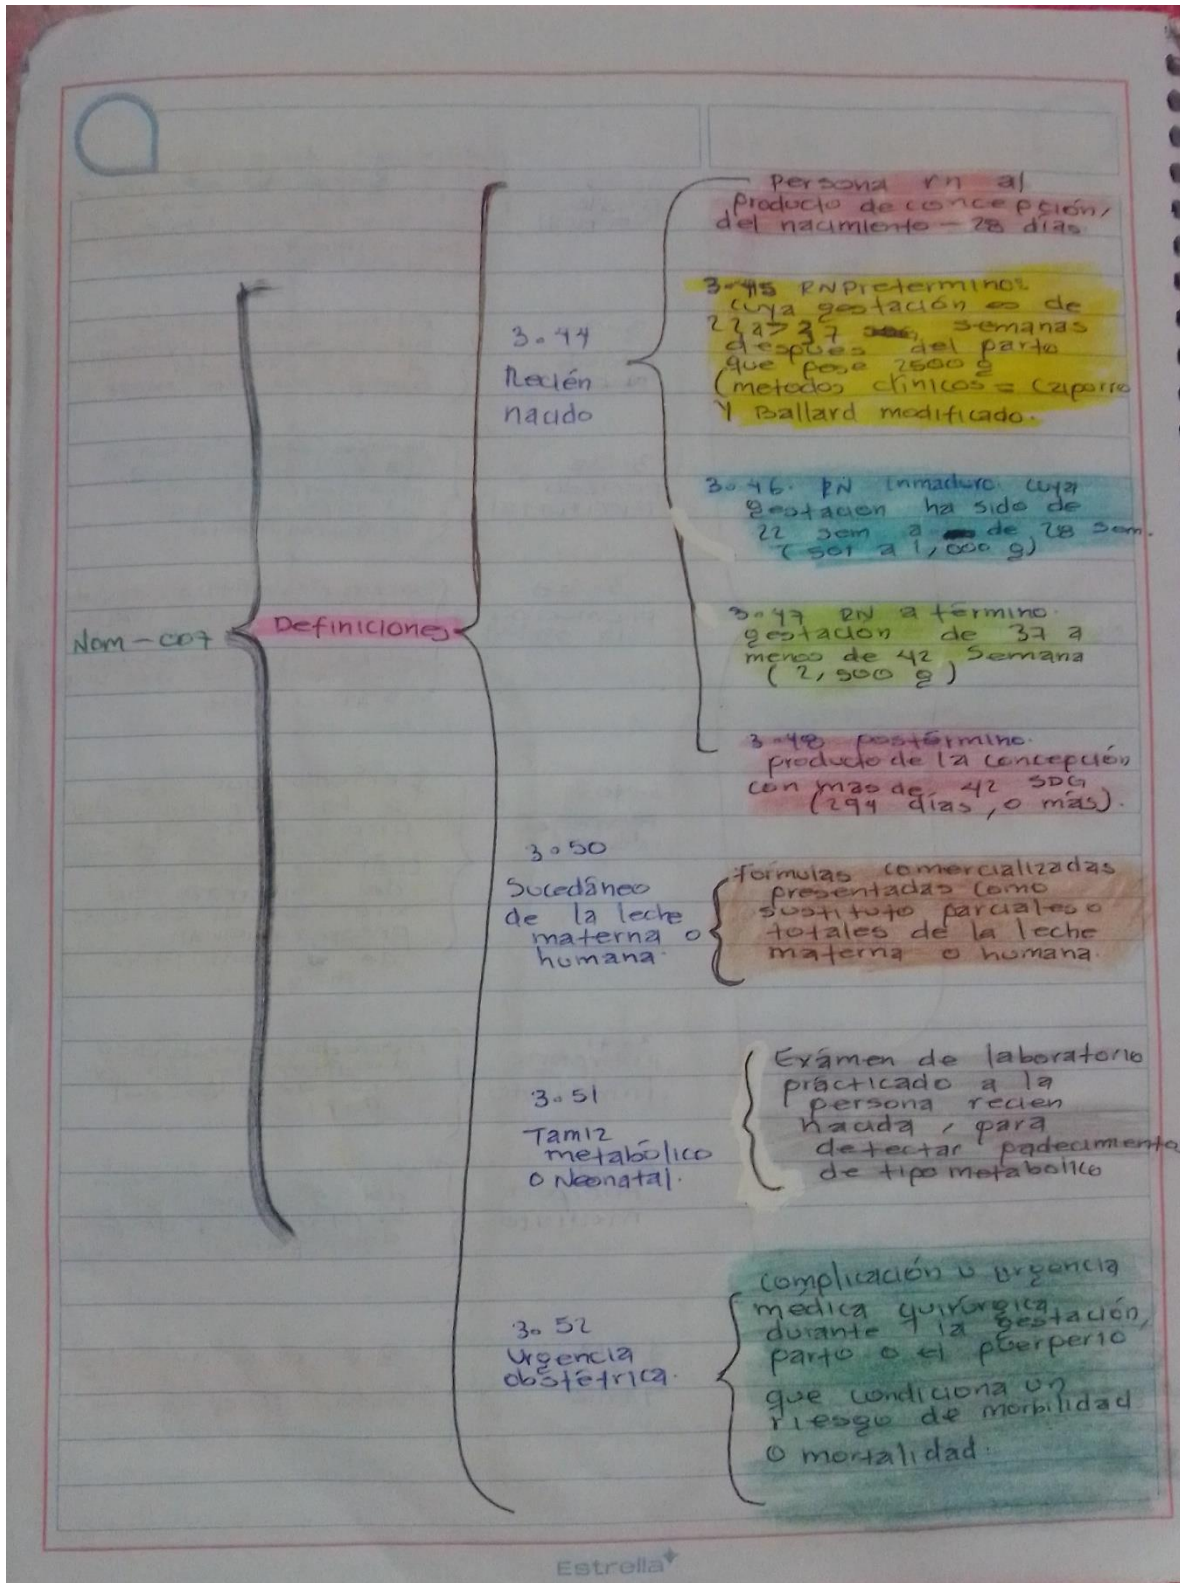 Nom-007
Definiciones
3.44
Recién
nacido
Persona rn al
producto de concepción,
del nacimiento - 28 días
3.45 RN Pretermino:
cuya gestación es de
22 a > 37 semanas
después del parto
que pese 2500 g
(metodos clínicos = Capurro
Y Ballard modificado.
3.46. RN inmaduro. cuya
gestacion ha sido de
22 sem a de 28 sem.
(501 a 1,000 g)
3.47 RN a término.
gestación de 37 a
menos de 42 Semana
(2,500 g)
3.48 postérmino.
producto de la concepción
con mas de 42 SDG
(294 días, o más).
3.50
Sucedáneo
de la leche
materna o
humana.
formulas comercializadas
presentadas como
sustituto parciales o
totales de la leche
materna o humana.
3.51
Tamiz
metabólico
o Neonatal.
Exámen de laboratorio
prácticado a la
persona recien
nacida, para
detectar padecimiento
de tipo metabolico
3.52
Urgencia
obstétrica.
complicación u urgencia
medica quirúrgica
durante la gestación,
parto o el puerperio
que condiciona un
riesgo de morbilidad
o mortalidad.
Estrella